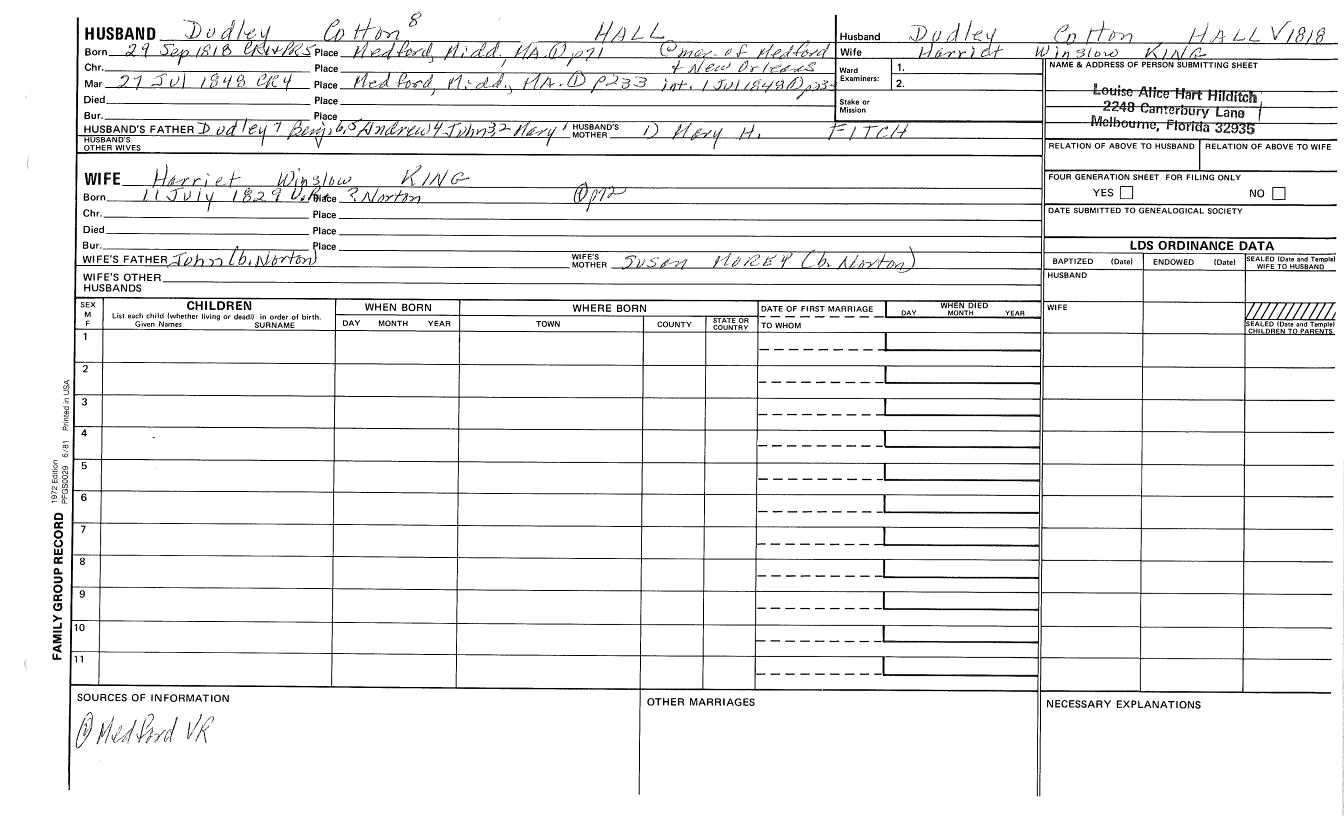 HUSBAND Dudley Cotton 8 HALL
Born 29 Sep 1818 CR1+PR5 Place Medford, Midd., MA. ① p71 mer. of Medford
Chr. Place + New Orleans
Mar 27 Jul 1848 CR4 Place Medford, Midd., MA. ① p233 int. 1 Jul 1848 ①
Died Place
Bur. Place
HUSBAND'S FATHER Dudley 7 Benj 6,5 Andrew 4 John 3 2 Mary 1 HUSBAND'S MOTHER 1) Mary H. FITCH
HUSBAND'S OTHER WIVES
WIFE Harriet Winslow KING
Born 11 July 1829 Place ? Norton ① p72
Chr. Place
Died Place
Bur. Place
WIFE'S FATHER John (b. Norton) WIFE'S MOTHER Susan MOREY (b. Norton)
WIFE'S OTHER HUSBANDS
Husband Dudley Cotton HALL V1818
Wife Harriet Winslow KING
Ward Examiners: 1.
2.
Stake or Mission
NAME & ADDRESS OF PERSON SUBMITTING SHEET
Louise Alice Hart Hilditch
2248 Canterbury Lane
Melbourne, Florida 32935
RELATION OF ABOVE TO HUSBAND RELATION OF ABOVE TO WIFE
FOUR GENERATION SHEET FOR FILING ONLY
YES NO
DATE SUBMITTED TO GENEALOGICAL SOCIETY
LDS ORDINANCE DATA
BAPTIZED (Date) ENDOWED (Date) SEALED (Date and Temple) WIFE TO HUSBAND
HUSBAND
WIFE
SEALED (Date and Temple) CHILDREN TO PARENTS
SEX M F CHILDREN WHEN BORN WHERE BORN DATE OF FIRST MARRIAGE WHEN DIED
List each child (whether living or dead) in order of birth.
Given Names SURNAME DAY MONTH YEAR TOWN COUNTY STATE OR COUNTRY TO WHOM DAY MONTH YEAR
1
2
3
4
5
6
7
8
9
10
11
FAMILY GROUP RECORD 1972 Edition PFGS0029 6/81 Printed in USA
SOURCES OF INFORMATION
① Medford VR
OTHER MARRIAGES
NECESSARY EXPLANATIONS